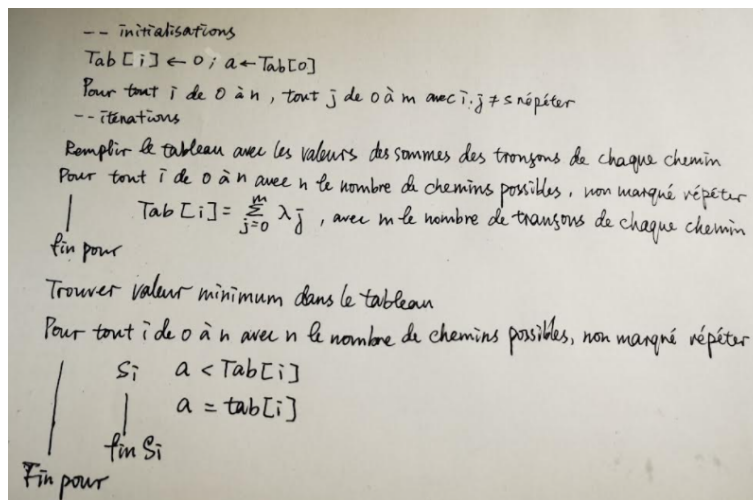 -- initialisations
Tab [i] ← 0 ; a ← Tab[0]
Pour tout i de 0 à n, tout j de 0 à m avec i.j ≠ s répéter
-- itérations
Remplir le tableau avec les valeurs des sommes des tronsons de chaque chemin
Pour tout i de 0 à n avec n le nombre de chemins possibles, non marqué répéter
Tab [i] = \sum_{j=0}^{m} λj , avec m le nombre de transons de chaque chemin
fin pour
Trouver valeur minimum dans le tableau
Pour tout i de 0 à n avec n le nombre de chemins possibles, non marqué répéter
Si a < Tab[i]
a = tab[i]
fin Si
Fin pour